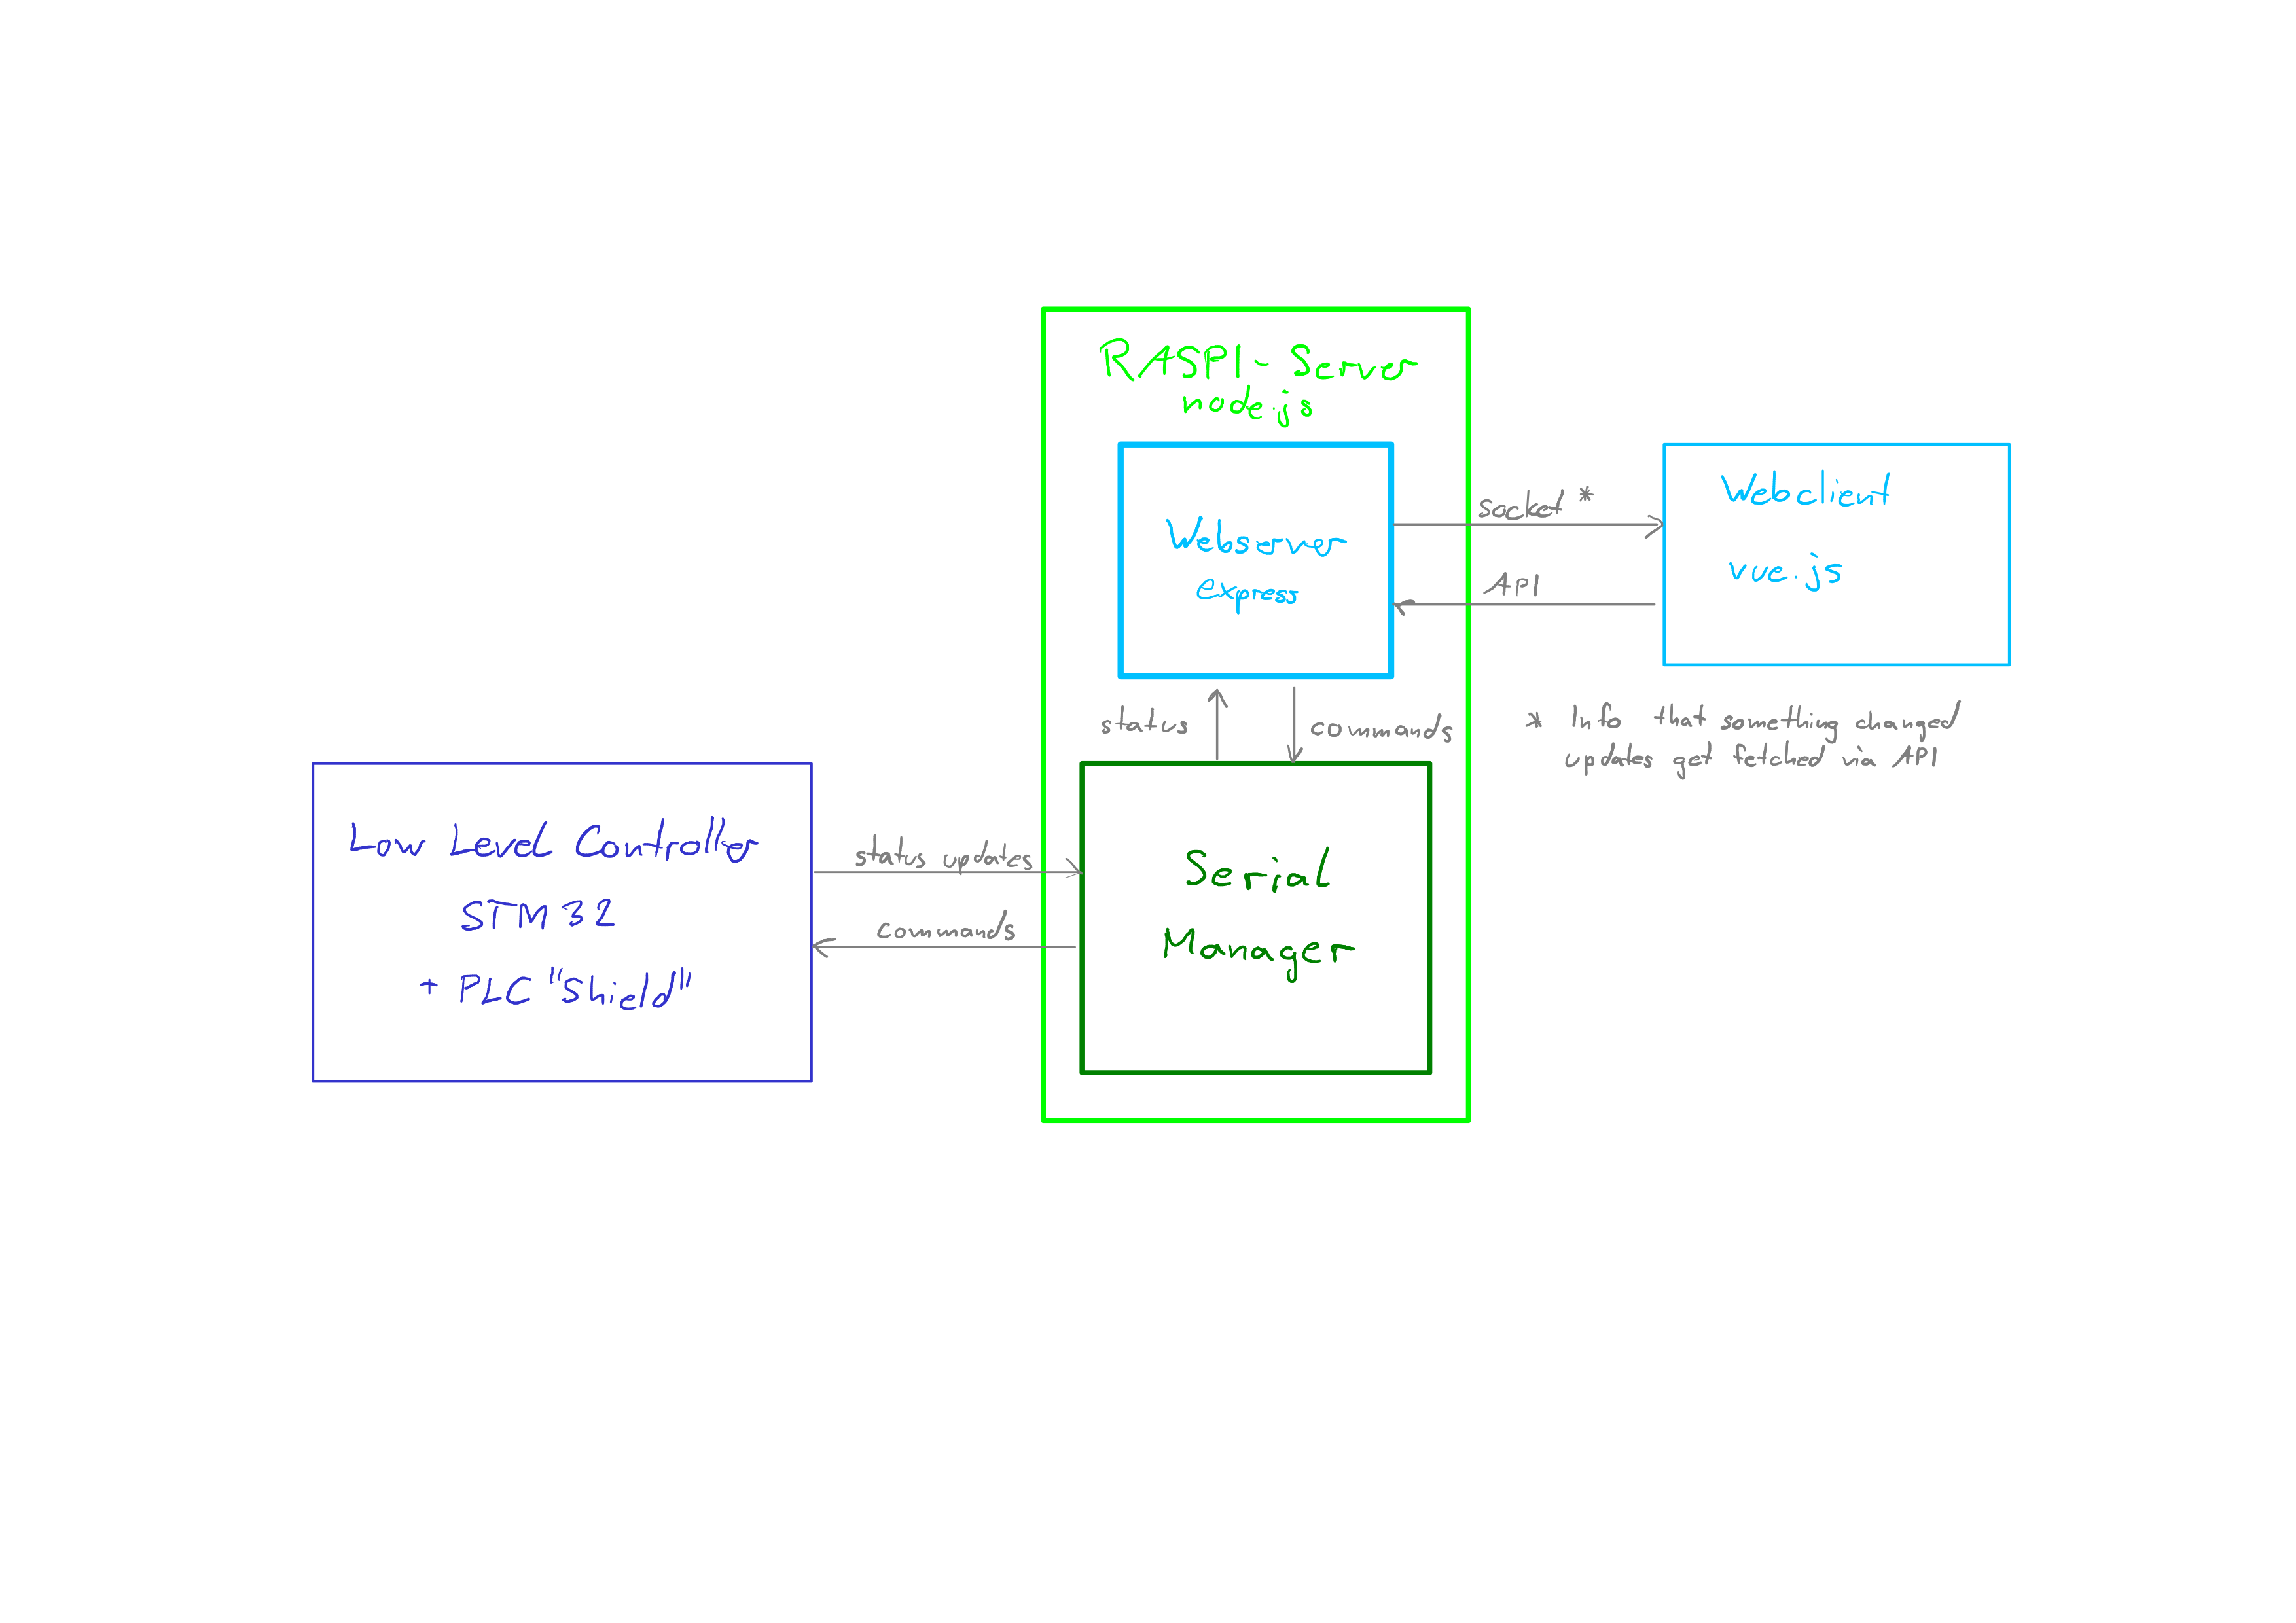 RASPI - Server
node.js
Webserver
express
socket *
API
Webclient
vue.js
* Info that something changed
updates get fetched via API
status
commands
Low Level Controller
STM 32
+ PLC "Shield"
status updates
commands
Serial
Manager